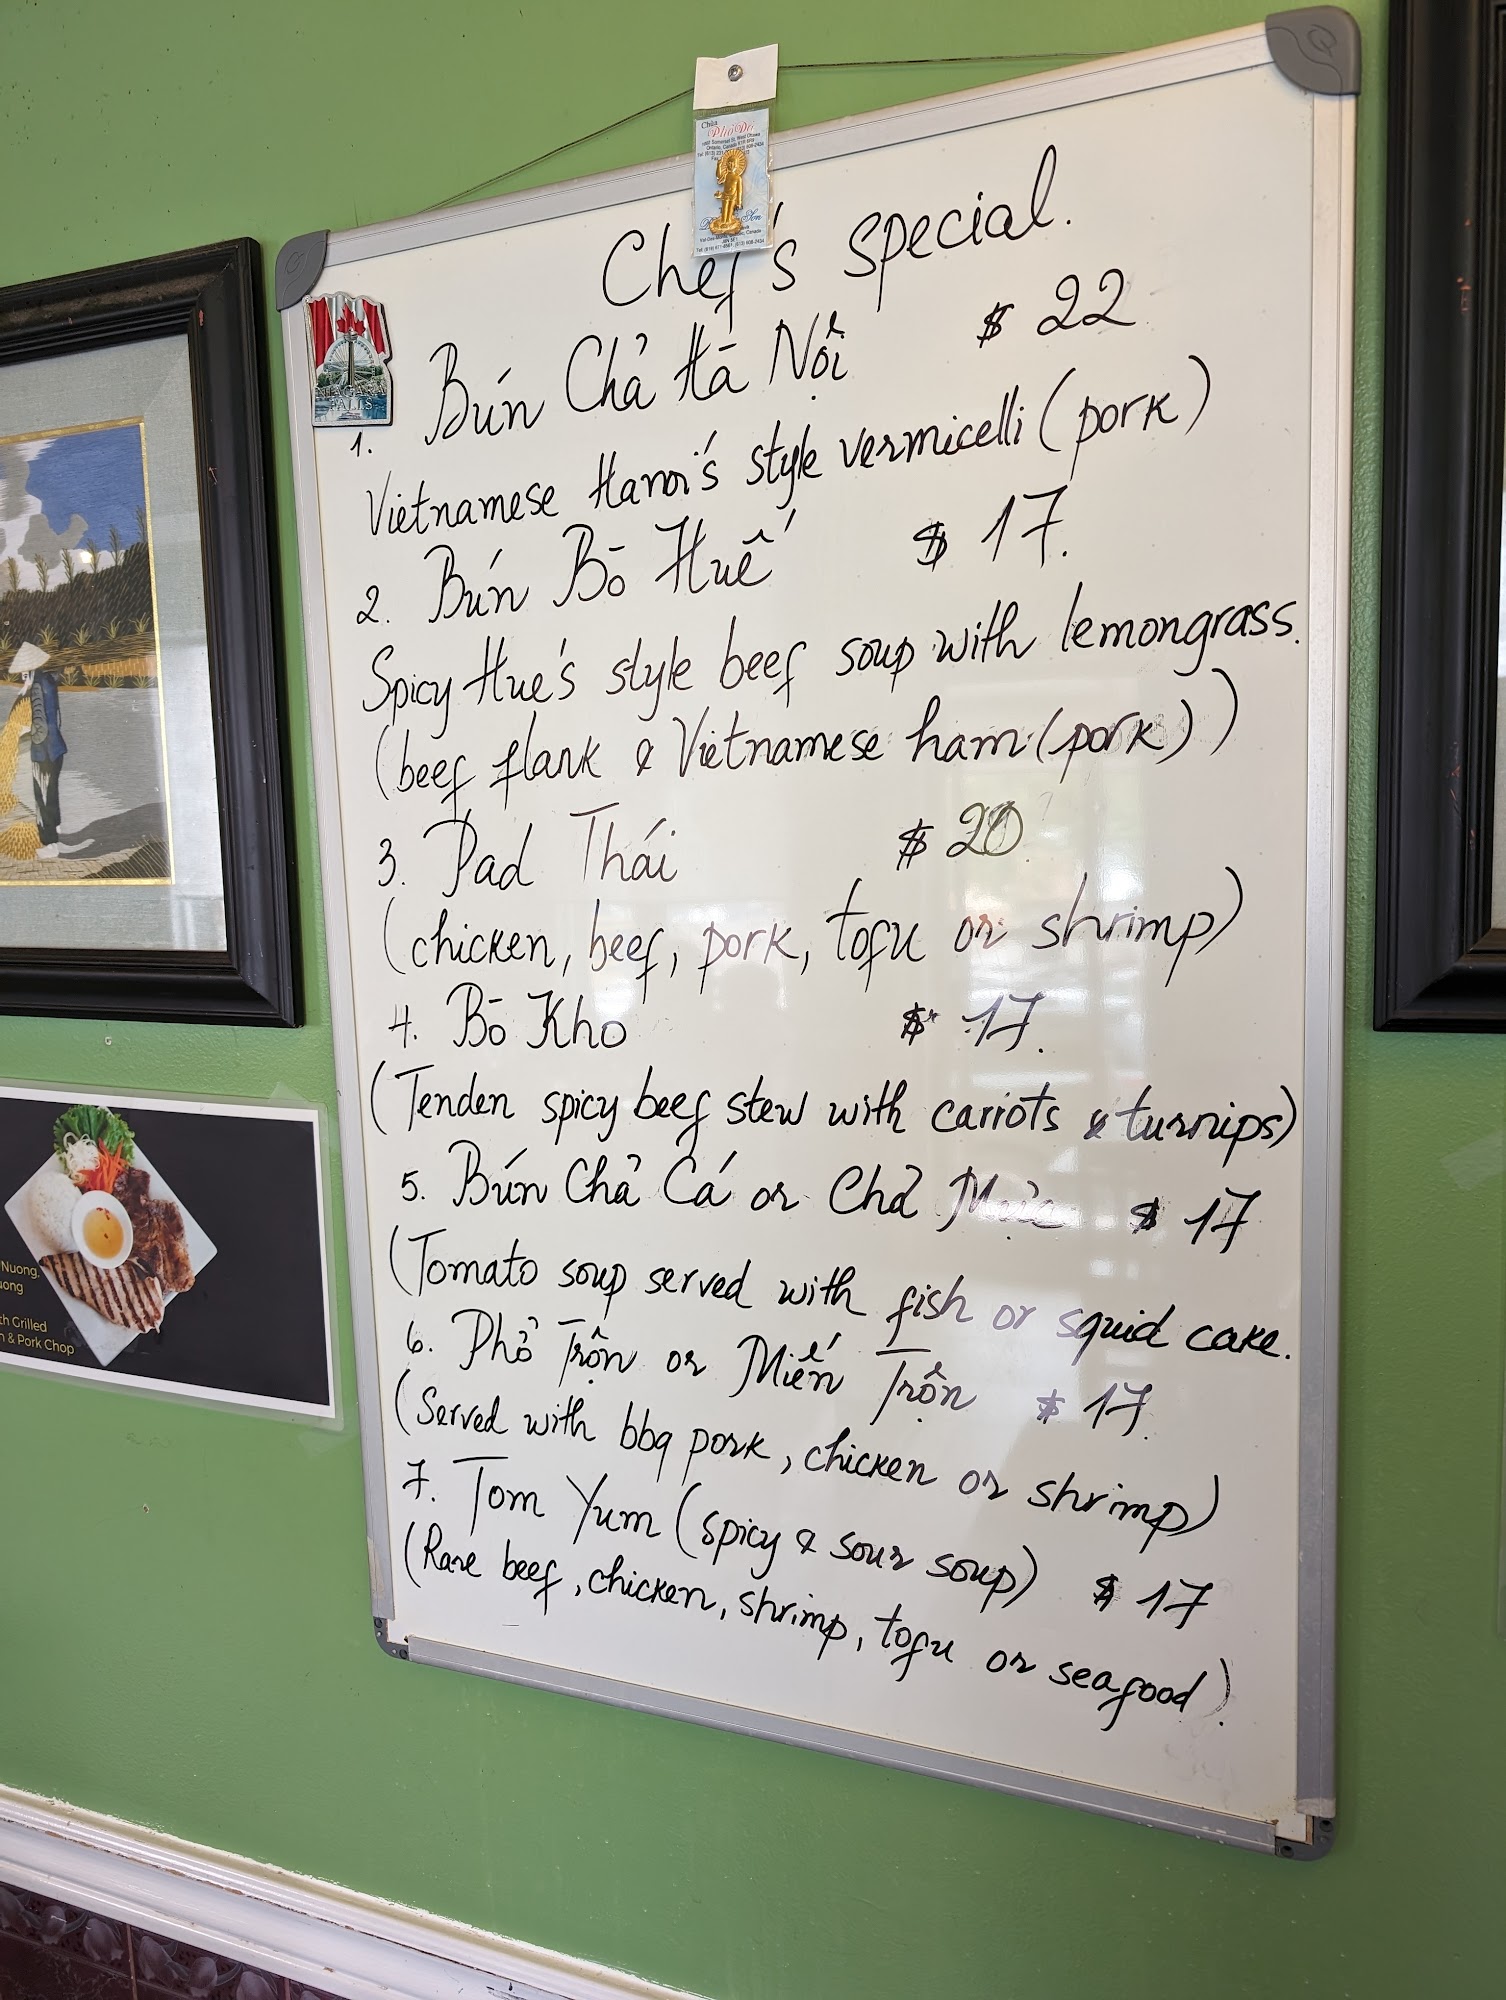 Chùa
Phổ Đà
Chef's special.
1. Bún Chả Hà Nội $ 22
Vietnamese Hanoi's style vermicelli (pork)
2. Bún Bò Huế $ 17.
Spicy Hue's style beef soup with lemongrass.
(beef flank & Vietnamese ham (pork))
3. Pad Thái $ 20
(chicken, beef, pork, tofu or shrimp)
4. Bò Kho $ 17.
(Tender spicy beef stew with carrots & turnips)
5. Bún Chả Cá or Chả Mực $ 17
(Tomato soup served with fish or squid cake.
6. Phở Trộn or Miến Trộn $ 17.
(Served with bbq pork, chicken or shrimp)
7. Tom Yum (spicy & sour soup) $ 17
(Rare beef, chicken, shrimp, tofu or seafood).
NIAGARA
FALLS
Nuong,
uong
th Grilled
n & Pork Chop